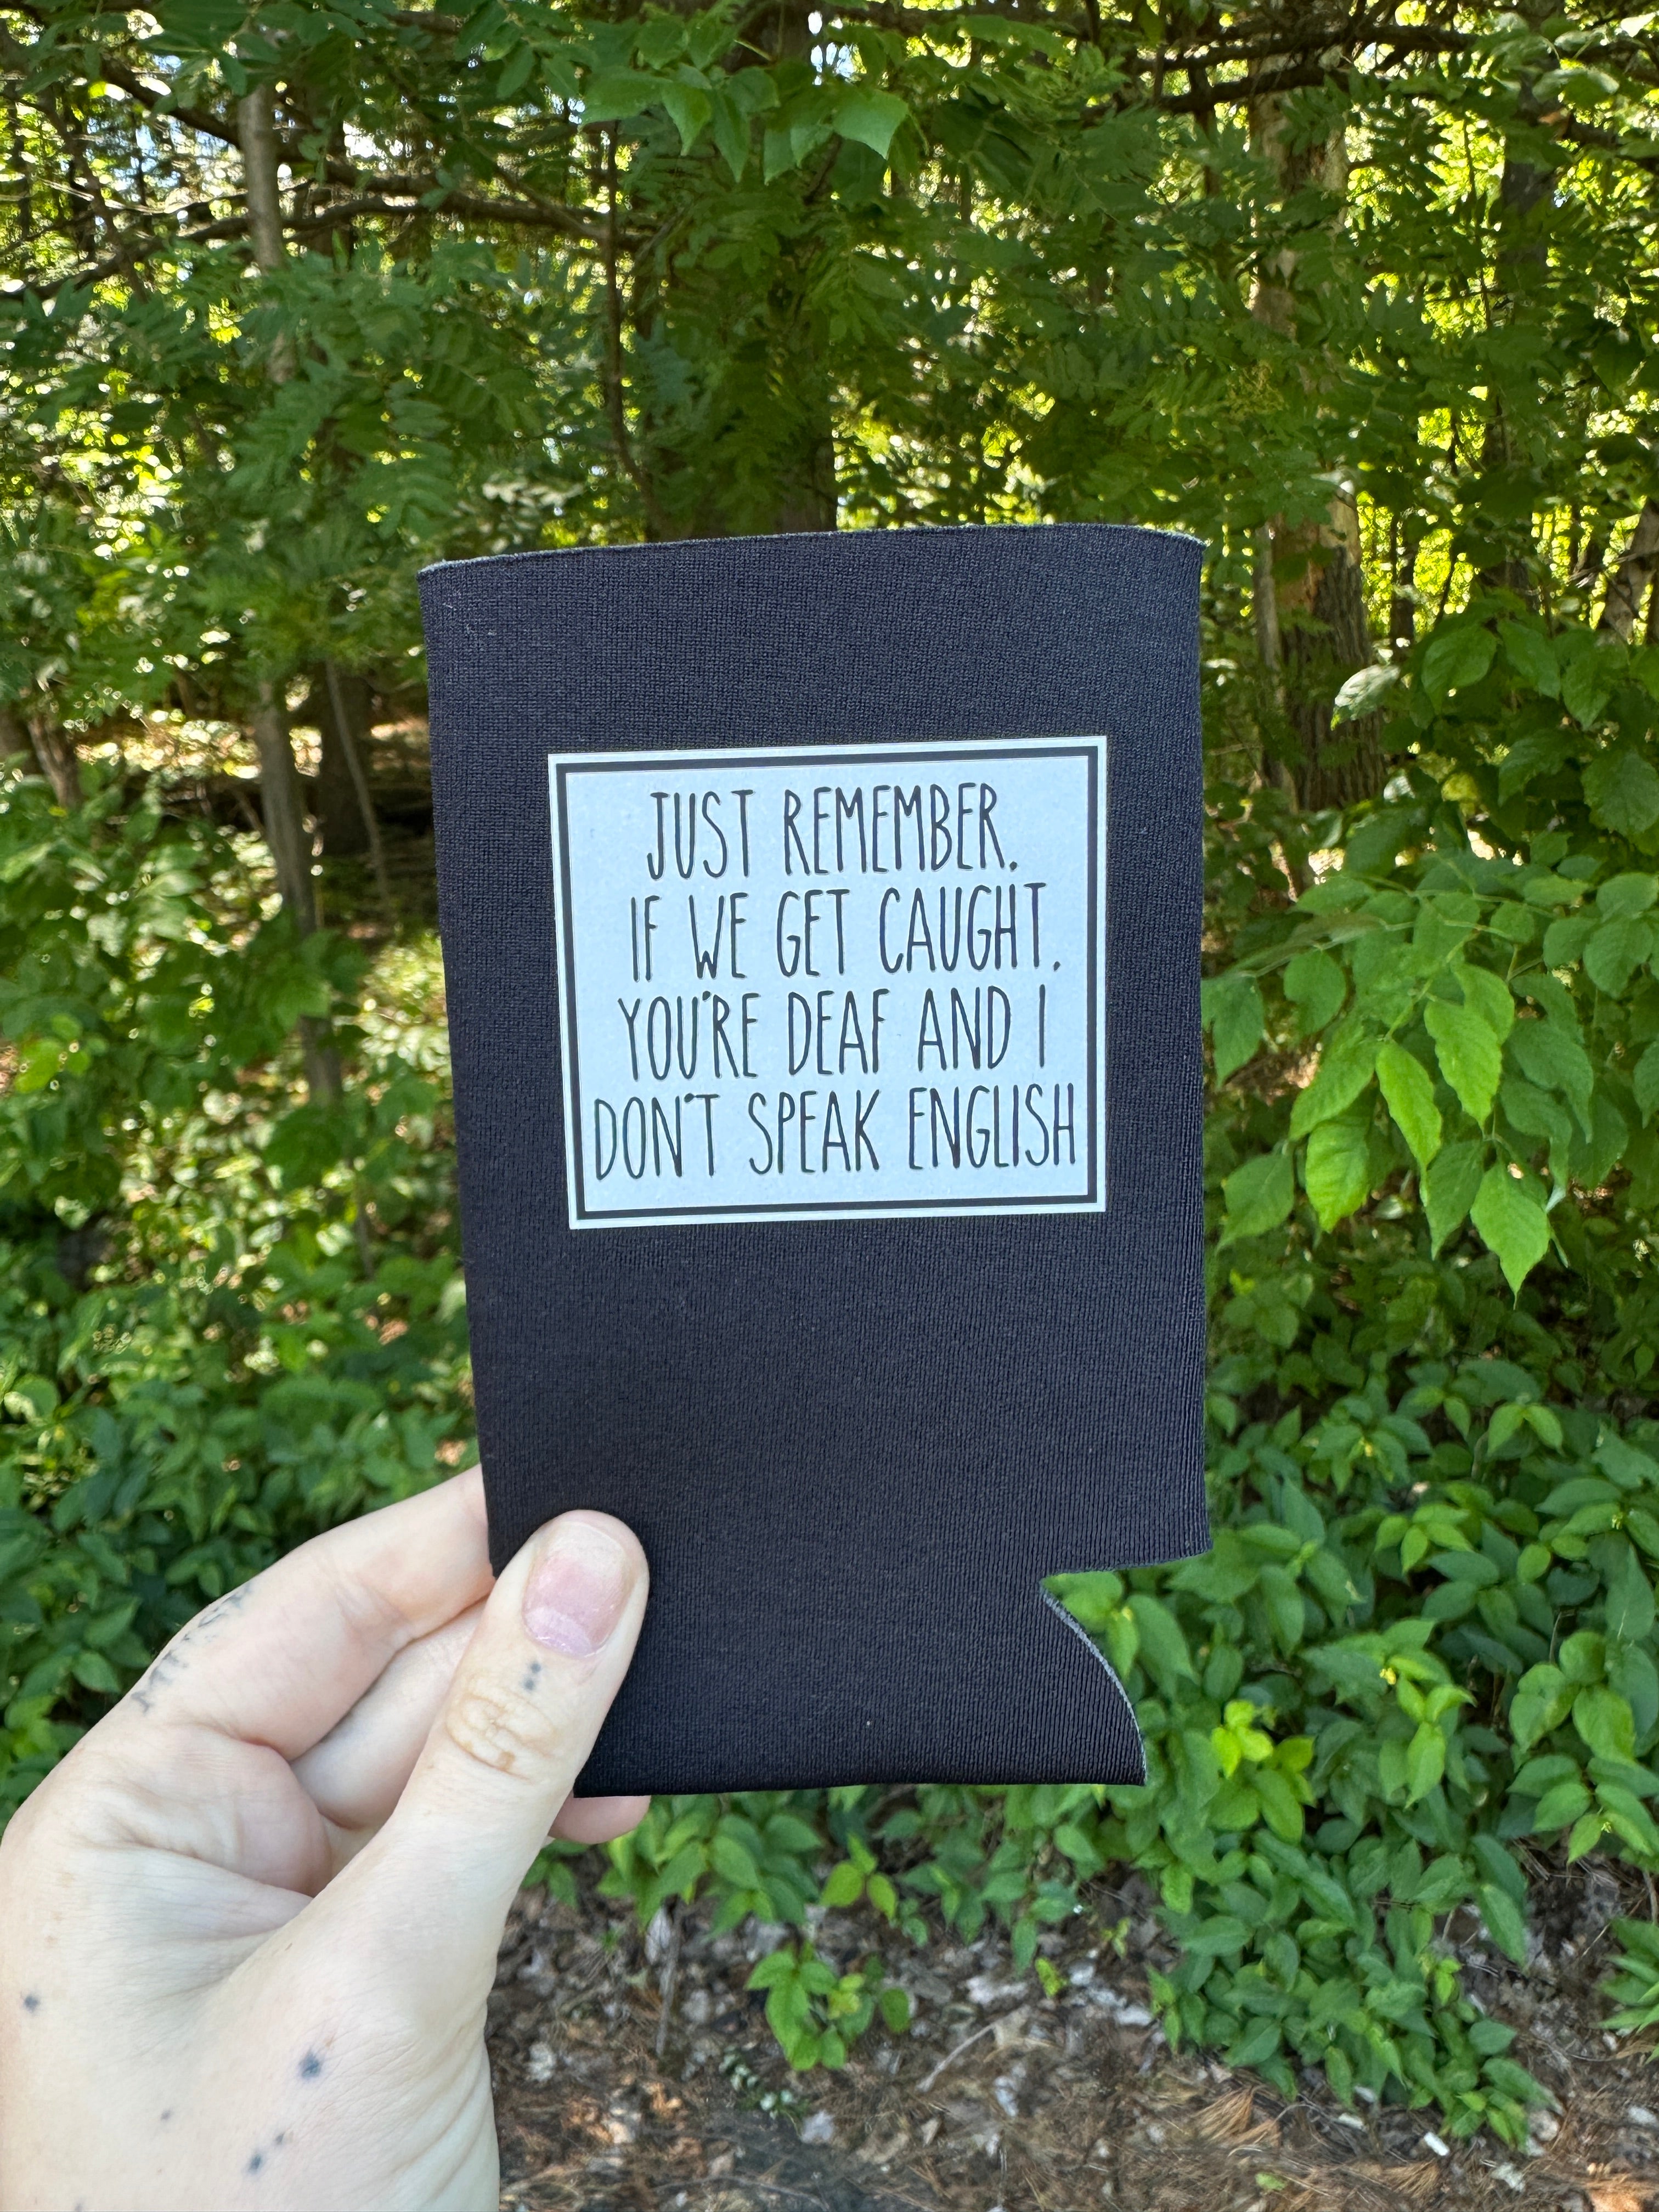 JUST REMEMBER,
IF WE GET CAUGHT,
YOU'RE DEAF AND I
DON'T SPEAK ENGLISH